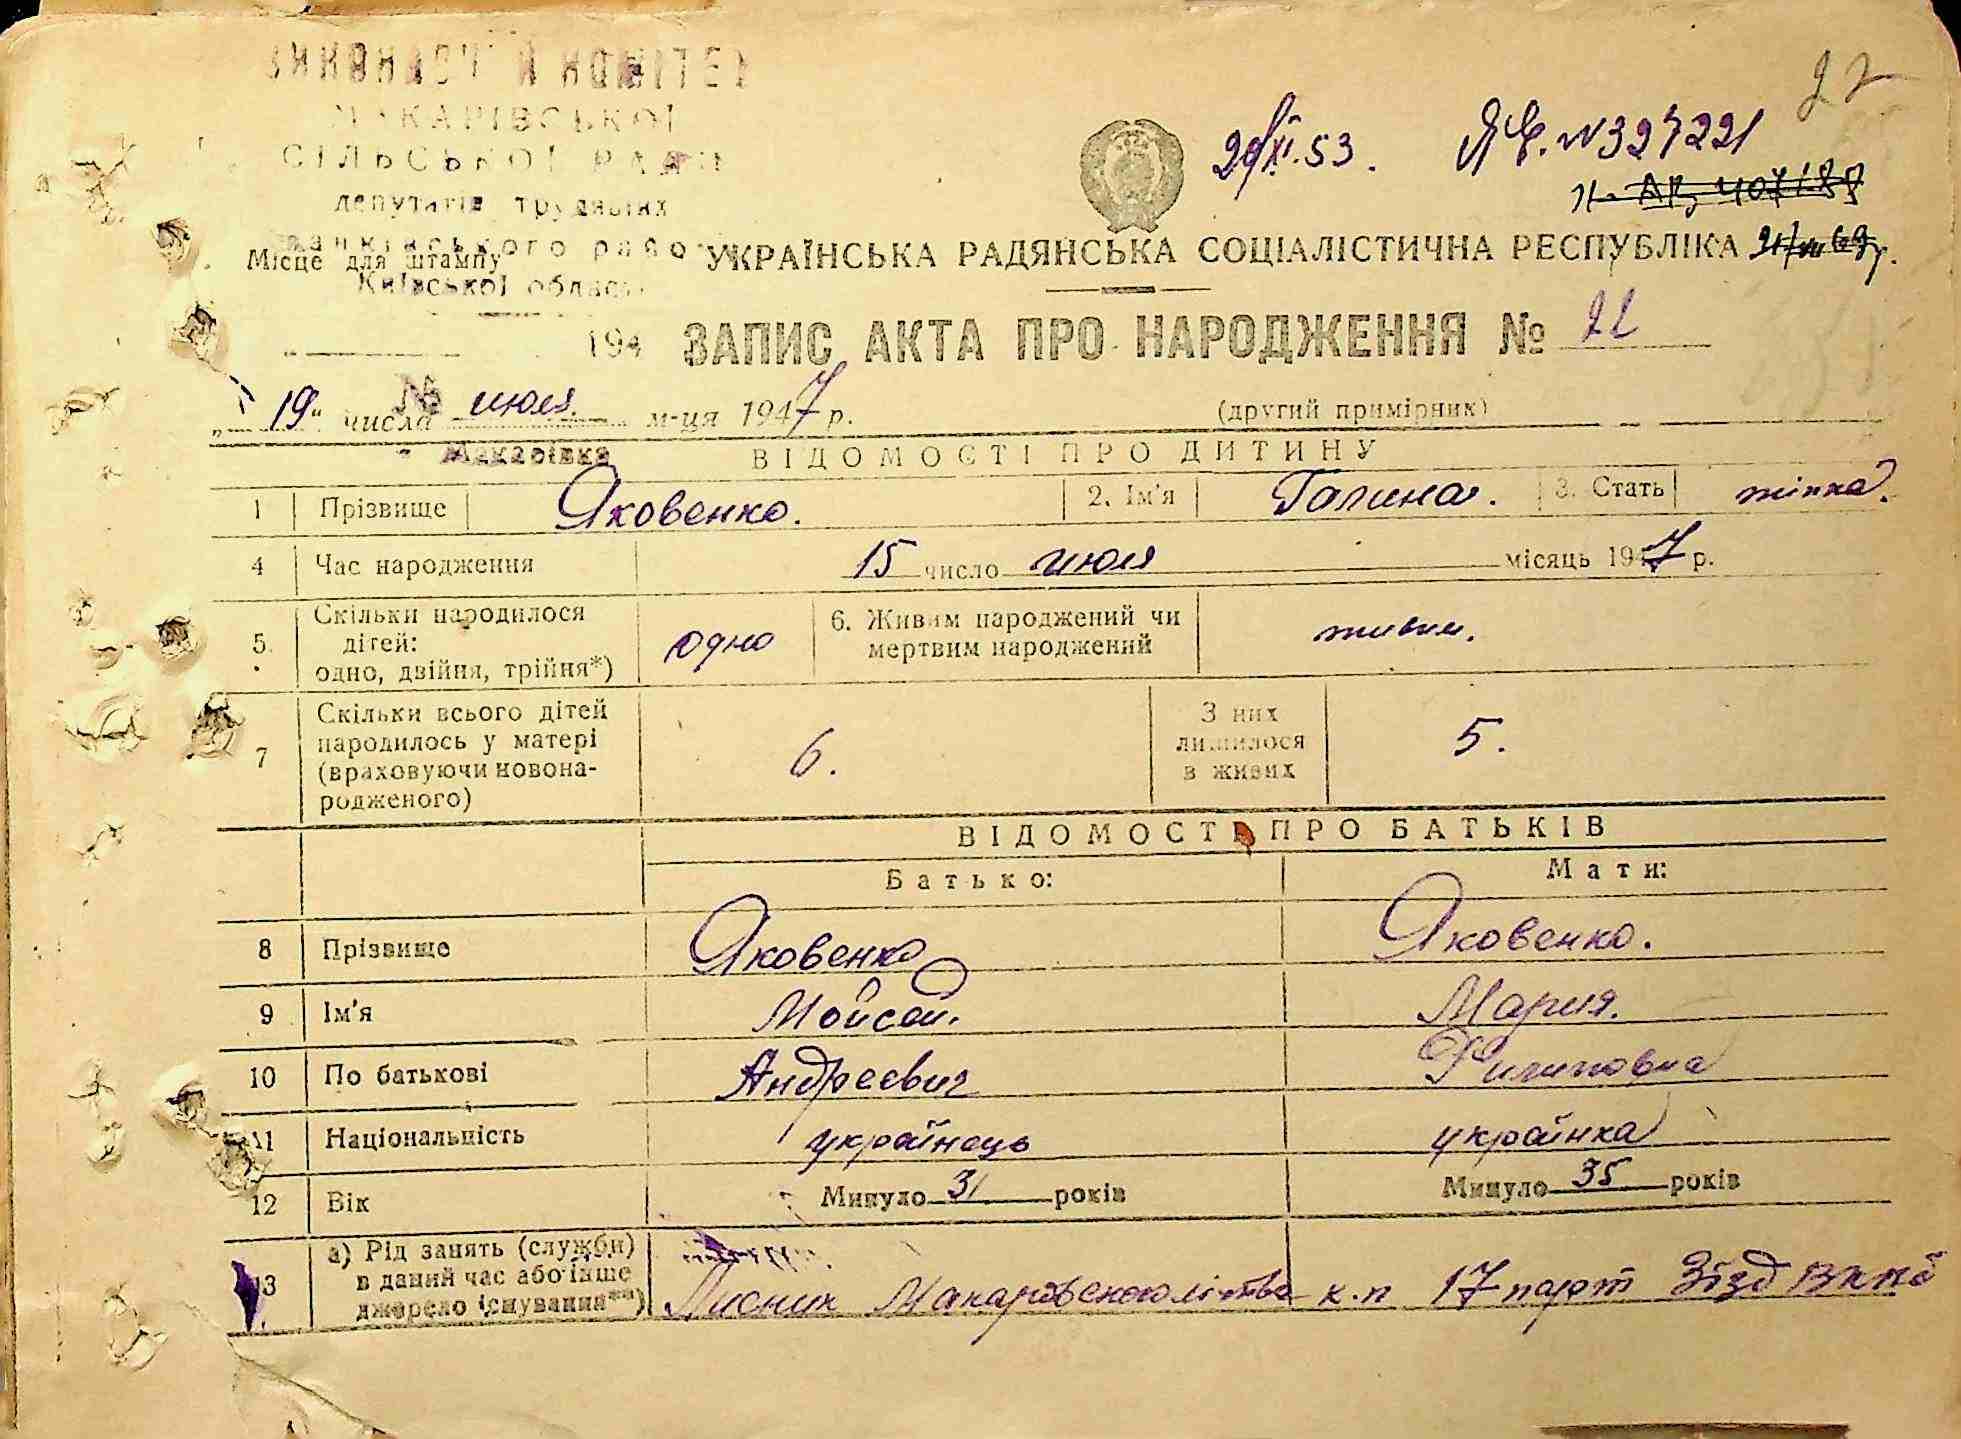 22
ВИКОНАВЧИЙ КОМІТЕТ
МАКАРІВСЬКОЇ
СІЛЬСЬКОЇ РАДИ
депутатів трудящих
району
Київської області
Місце для штампу
194
№
Макарівка
29/XI.53. ЯЧ. №327221
21/VII 69р.
УКРАЇНСЬКА РАДЯНСЬКА СОЦІАЛІСТИЧНА РЕСПУБЛІКА
ЗАПИС АКТА ПРО НАРОДЖЕННЯ № 22
„19" числа июля м-ця 1947 р. (другий примірник)
ВІДОМОСТІ ПРО ДИТИНУ
1 Прізвище Яковенко. 2. Ім'я Галина. 3. Стать жінка.
4 Час народження 15 число июля місяць 1947 р.
5. Скільки народилося дітей: одно, двійня, трійня*) одно 6. Живим народжений чи мертвим народжений живим.
7 Скільки всього дітей народилось у матері (враховуючи новонародженого) 6. З них лишилося в живих 5.
ВІДОМОСТІ ПРО БАТЬКІВ
Батько: Мати:
8 Прізвище Яковенко Яковенко.
9 Ім'я Мойсей. Мария.
10 По батькові Андреевич Филиповна
11 Національність українець українка
12 Вік Минуло 31 років Минуло 35 років
13 а) Рід занять (служби) в даний час або інше джерело існування**) Лисник к.п 17 парт Зїзд ВКПб